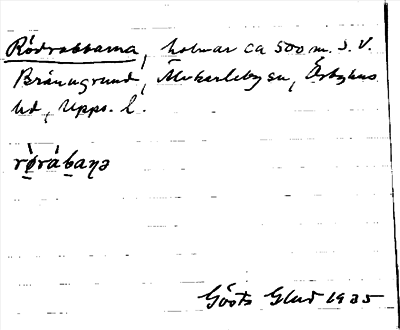 Rödrabbarna, holmar ca 500 m. S.V.
Brännugrund, Älvkarleby sn, Örbyhus
hd, Upps. l.
Gösta Glud 1935